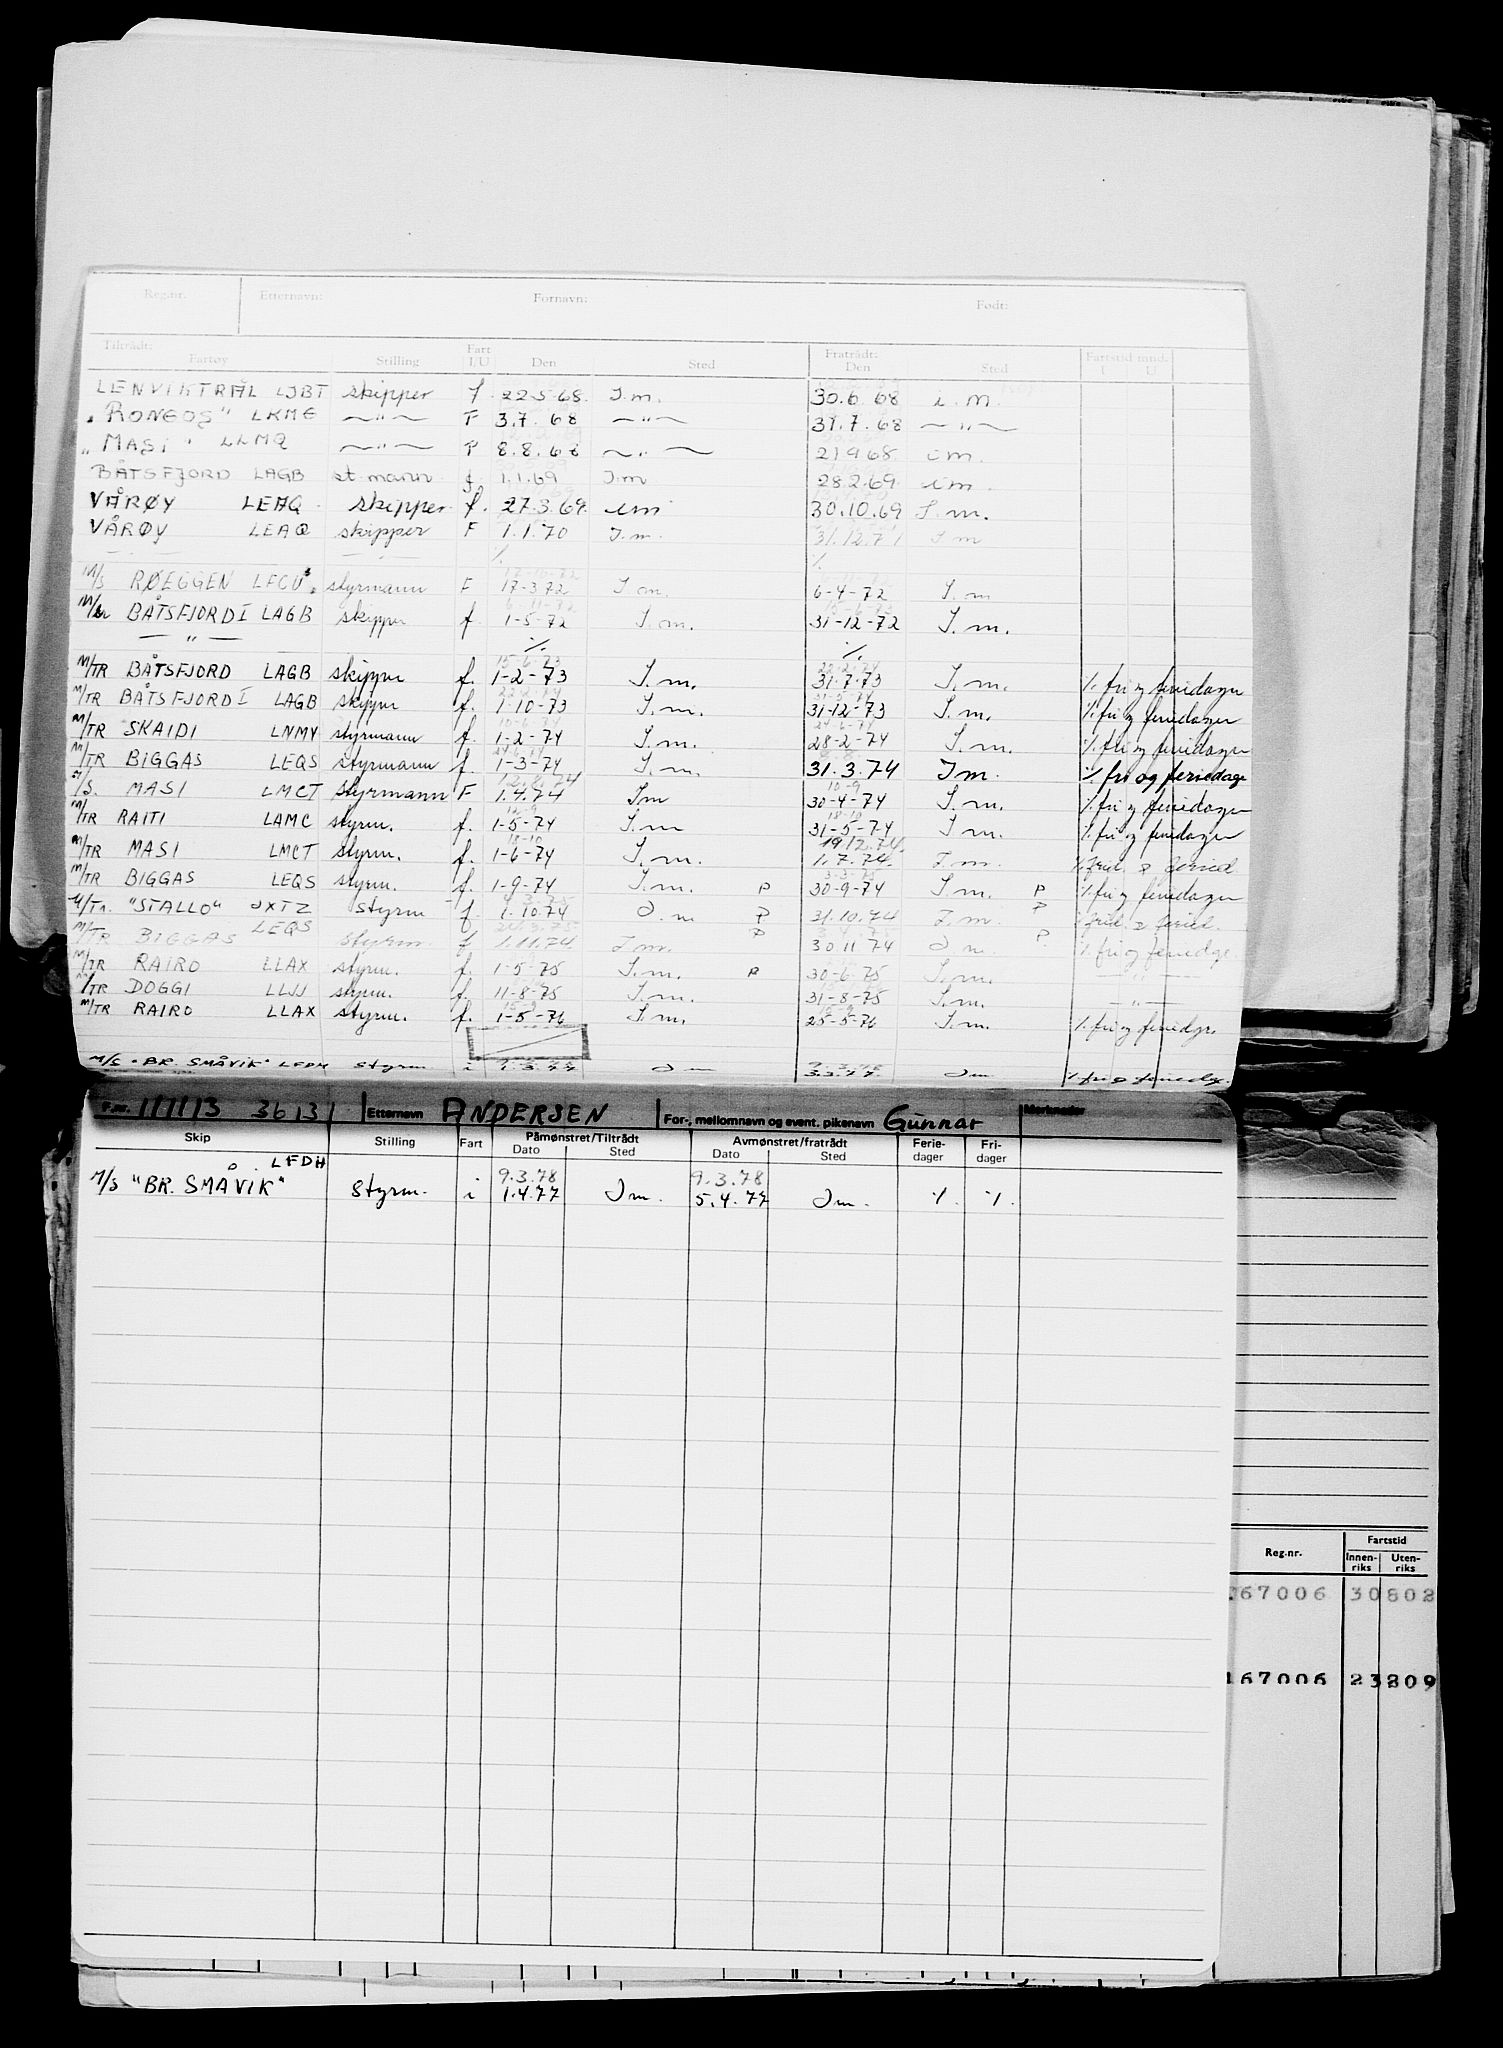 Reg.nr. Etternavn: Fornavn: Født:
Tiltrådt: Fratrådt: Fartstid mnd.
Fartøy Stilling Fart I/U Den Sted Den Sted I U
LENVIKTRÅL LJBT skipper f 22.5.68. I.m. 30.6.68 i.m.
"RONGOS" LKME —"— F 3.7.68 —"— 31.7.68 —"—
"MASI" LLMQ —"— F 8.8.68 —"— 21968 im.
BÅTSFJORD LAGB st.mann f 1.1.69 I.m 28.2.69. im.
VÅRØY LEAQ skipper f. 27.3.69. im 30.10.69 I.m.
VÅRØY LEAQ skipper F 1.1.70 I.m. 31.12.71 I m
—"— —"— % %
M/S RØEGGEN LFCU styrmann F 17-3 72 I m. 6-4-72 I.m
BÅTSFJORD I LAGB skipper f. 1-5-72 I.m. 31-12-72 I.m.
—"— % %
M/TR BÅTSFJORD LAGB skipper f. 1-2-73 I.m. 31.7.73 I.m. % fri og feriedager
M/TR BÅTSFJORD I LAGB skipper f. 1-10-73 I.m. 31-12-73 I.m. % fri og feriedager
M/TR SKAIDI LNMY styrmann f. 1-2-74 I.m. 28-2-74 I.m. % fri og feriedager
M/TR BIGGAS LEQS styrmann f. 1-3-74 I.m. 31.3.74 Im. % fri og feriedage
/S. MASI LMCT styrmann F 1.4.74 Im 30-4-74 I.m. % fri og feriedager
M/TR RAITI LAMC styrm. f. 1-5-74 I.m 31-5-74 I.m. % fri og feriedager
19.12.74.
M/TR MASI LMCT styrm. f. 1-6-74 I.m. 1.7.74. I.m. % frid. & feried.
M/TR BIGGAS LEQS styrm. f. 1-9-74 I.m. P 30-9-74 I.m. P % fri og feriedager
M/Tr. "STALLO" JXTZ styrm f. 1.10.74 I.m P 31.10.74 I.m. P % frid. & feried.
M/TR BIGGAS LEQS styrm. f 1.11.74 I.m. P 30 11 74 I.m. P % fri og feriedge.
M/TR RAIRO LLAX styrm. f. 1-5-75 I.m. P 30-6-75 I.m. —"—
M/TR DOGGI LLJJ styrm. f. 11-8-75 I.m. 31-8-75 I.m. —"—
M/TR RAIRO LLAX styrm. f. 1-5-76 I.m. 25-5-76 I.m. % fri og feriedgr.
M/S "BR. SMÅVIK" LFDH styrm i 1.3.77 Im Im % fri og feriedg.
F.nr. 111113 36131 Etternavn ANDERSEN For-, mellomnavn og event. pikenavn Gunnar Merknader
Skip Stilling Fart Påmønstret/Tiltrådt Avmønstret/fratrådt Ferie- Fri-
Dato Sted Dato Sted dager dager
LFDH 9.3.78 9.3.78
M/S "BR. SMÅVIK" Styrm. i 1.4.77 Im. 5.4.77 Im. % %
Reg.nr. Fartstid
Innen- Uten-
riks riks
67006 30802
167006 23209